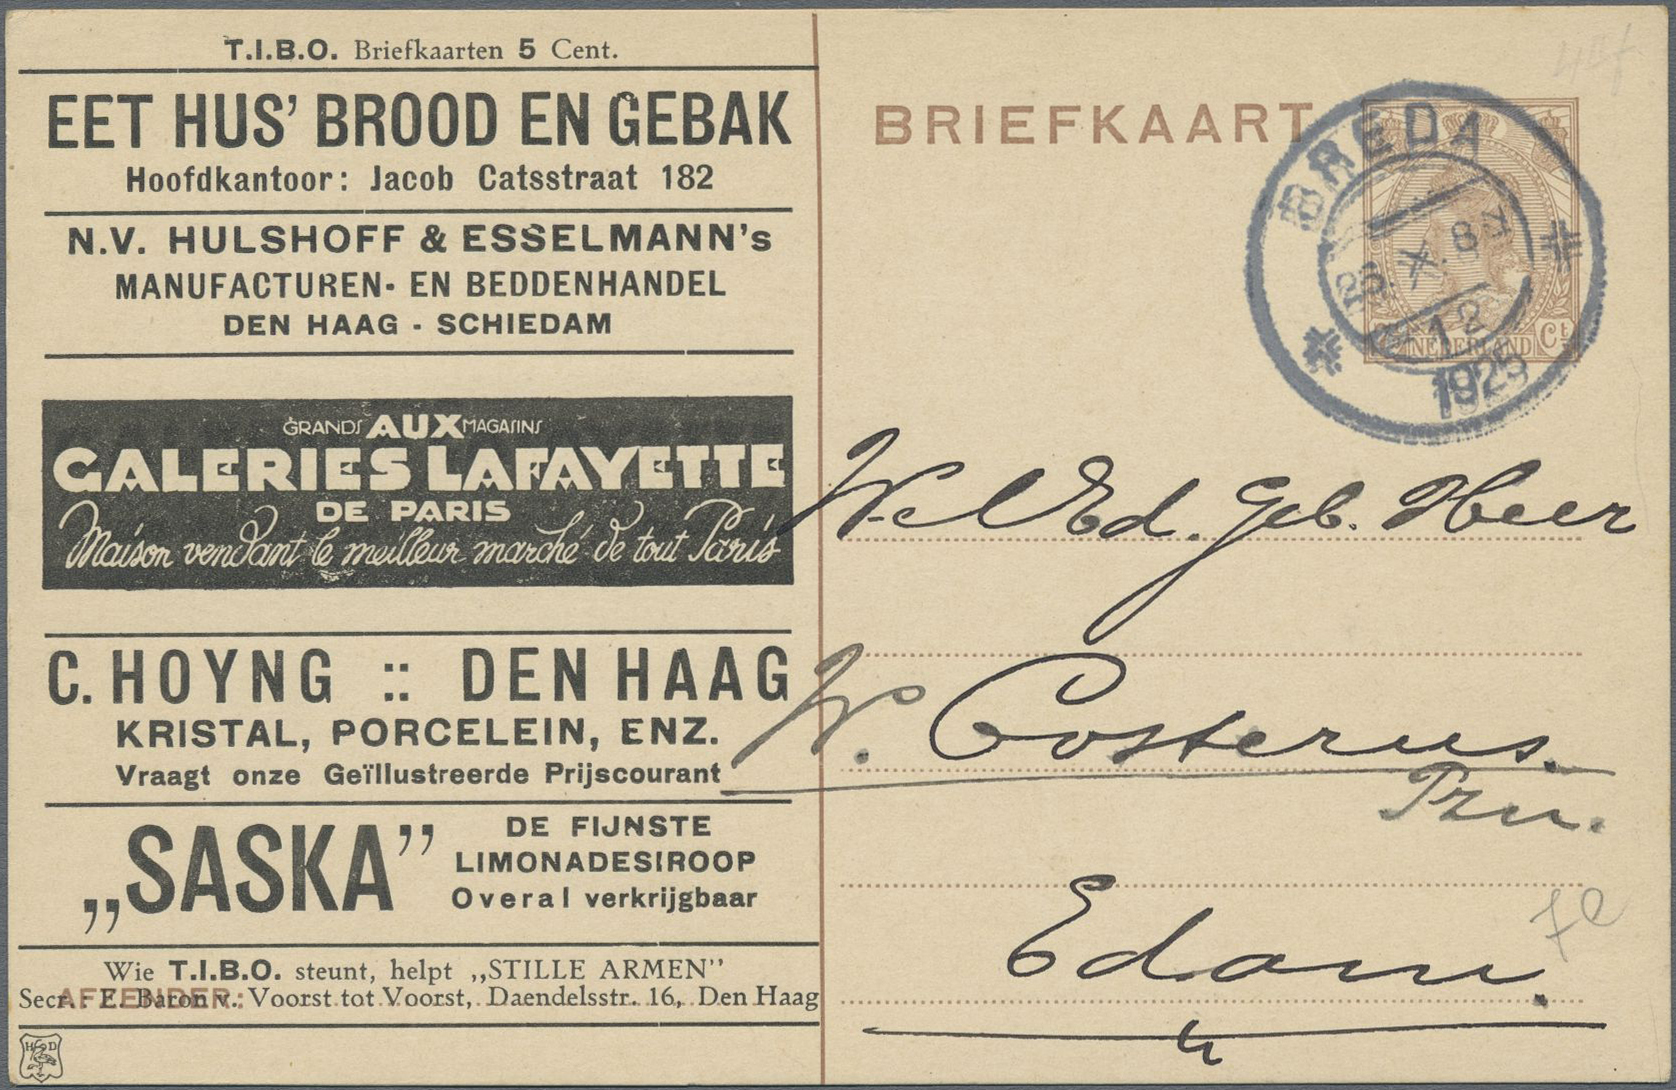 T.I.B.O. Briefkaarten 5 Cent.
EET HUS' BROOD EN GEBAK
Hoofdkantoor: Jacob Catsstraat 182
N.V. HULSHOFF & ESSELMANN's
MANUFACTUREN- EN BEDDENHANDEL
DEN HAAG - SCHIEDAM
GRANDS AUX MAGASINS
GALERIES LAFAYETTE
DE PARIS
Maison vendant le meilleur marché de tout Paris
C. HOYNG :: DEN HAAG
KRISTAL, PORCELEIN, ENZ.
Vraagt onze Geïllustreerde Prijscourant
„SASKA”
DE FIJNSTE
LIMONADESIROOP
Overal verkrijgbaar
Wie T.I.B.O. steunt, helpt „STILLE ARMEN”
Secr. - E. Baron v. Voorst tot Voorst, Daendelsstr. 16, Den Haag
AFZENDER:
H D
BRIEFKAART
BREDA
1929
NEDERLAND Ct
WelEd. Geb. Heer
W. Costerus.
Pzn.
Edam.